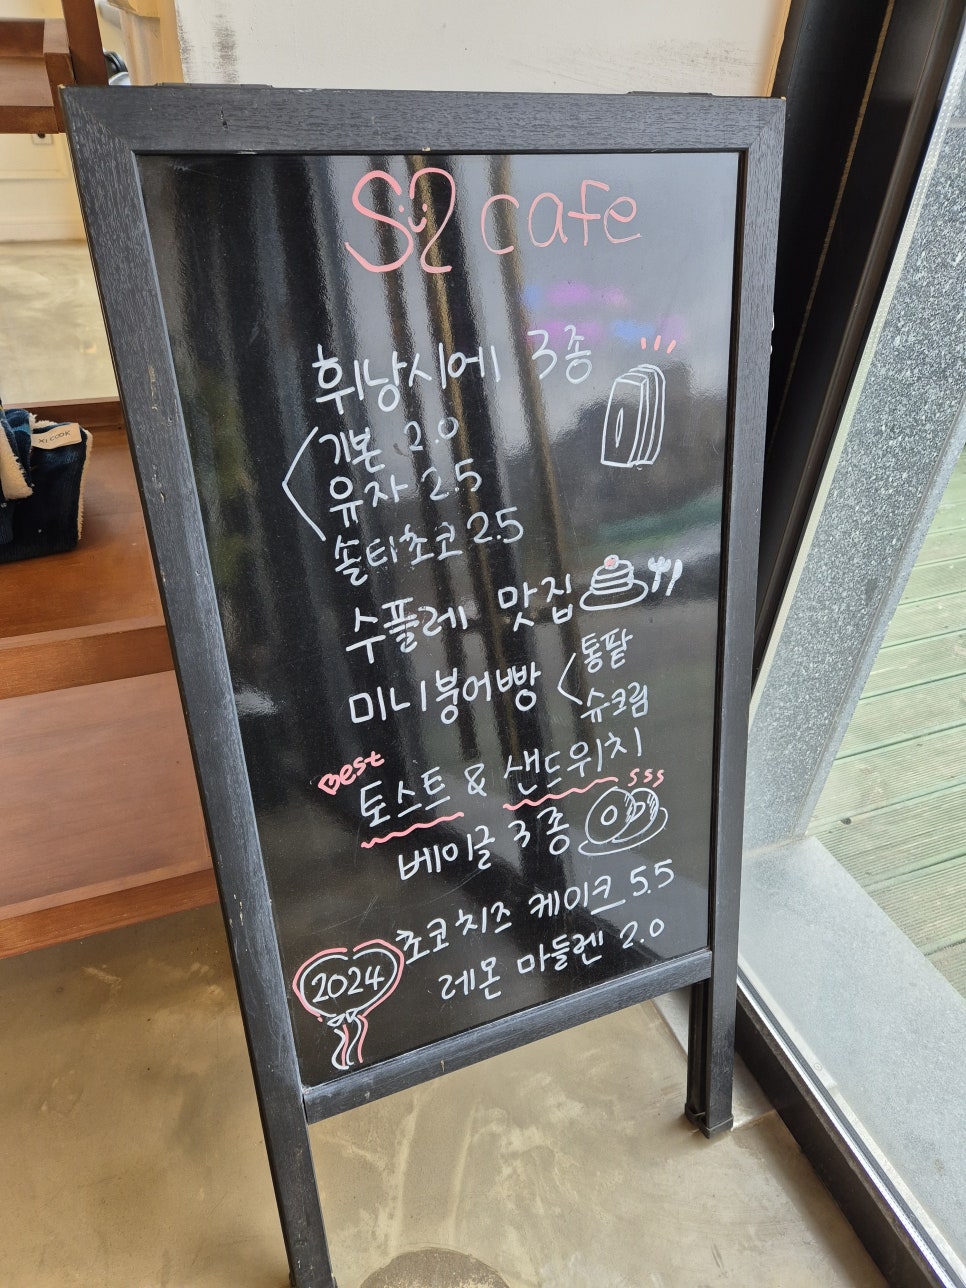 S2 cafe
휘낭시에 3종
기본 2.0
유자 2.5
솔티초코 2.5
수플레 맛집
미니붕어빵
통팥
슈크림
Best
토스트 & 샌드위치
sss
베이글 3종
초코치즈 케이크 5.5
레몬 마들렌 2.0
2024
XI COOK